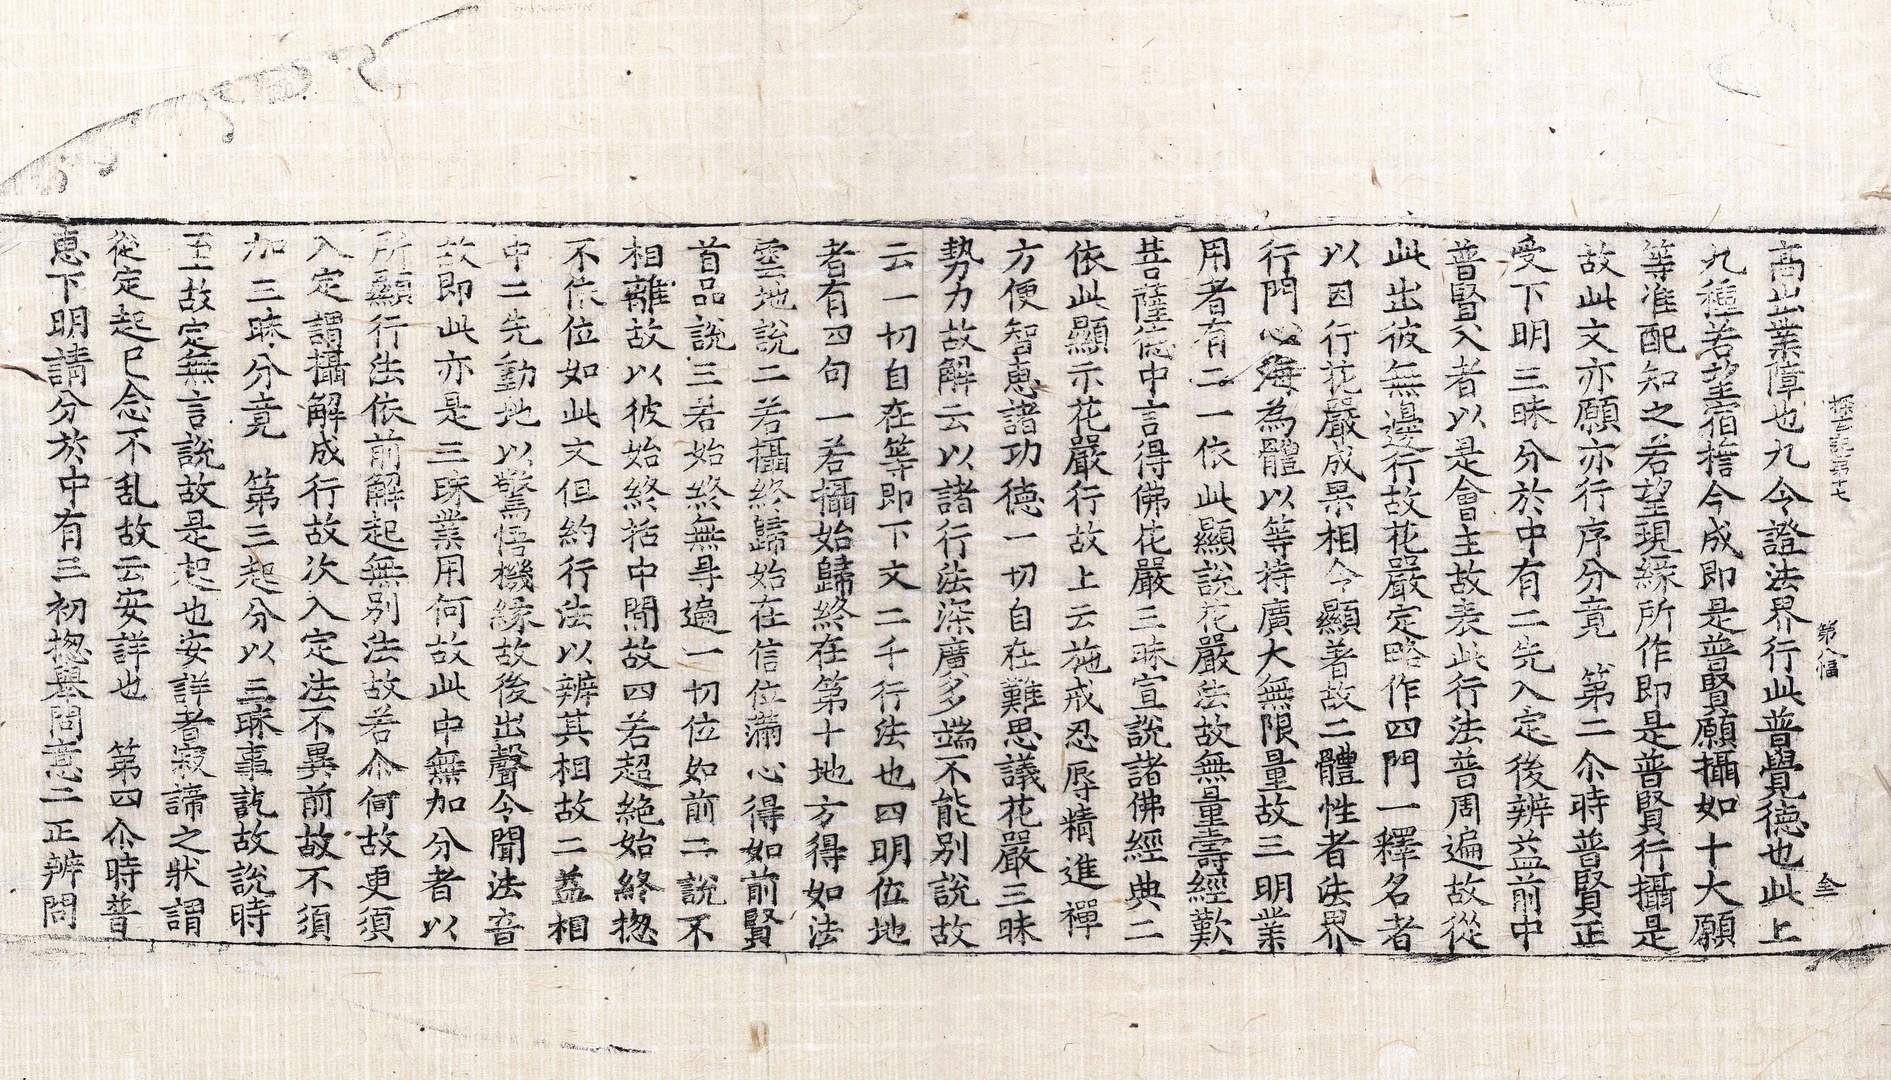 探玄記第十七 第八幅 全
高出業障也九令證法界行此普覺德也此上
九種若望宿擔今成即是普賢願攝如十大願
等准配知之若望現緣所作即是普賢行攝是
故此文亦願亦行序分竟 第二尒時普賢正
受下明三昧分於中有二先入定後辨益前中
普賢入者以是會主故表此行法普周遍故從
此出彼無邊行故花嚴定略作四門一釋名者
以因行花嚴成果相令顯著故二體性者法界
行門心海為體以等持廣大無限量故三明業
用者有二一依此顯說花嚴法故無量壽經歎
菩薩德中言得佛花嚴三昧宣說諸佛經典二
依此顯示花嚴行故上云施戒忍辱精進禪
方便智恵諸功德一切自在難思議花嚴三昧
勢力故解云以諸行法深廣多端不能別說故
云一切自在等即下文二千行法也四明位地
者有四句一若攝始歸終在第十地方得如法
雲地說二若攝終歸始在信位滿心得如前賢
首品說三若始終無㝵遍一切位如前二說不
相離故以彼始終括中間故四若超絶始終揔
不依位如此文但約行法以辨其相故二益相
中二先動地以驚悟機緣故後出聲令聞法音
故即此亦是三昧業用何故此中無加分者以
所顯行法依前解起無別法故若尒何故更須
入定謂攝解成行故次入定法不異前故不須
加三昧分竟 第三起分以三昧事訖故說時
至故定無言說故是起也安詳者寂諦之狀謂
從定起已念不乱故云安詳也 第四尒時普
恵下明請分於中有三初揔舉問意二正辨問